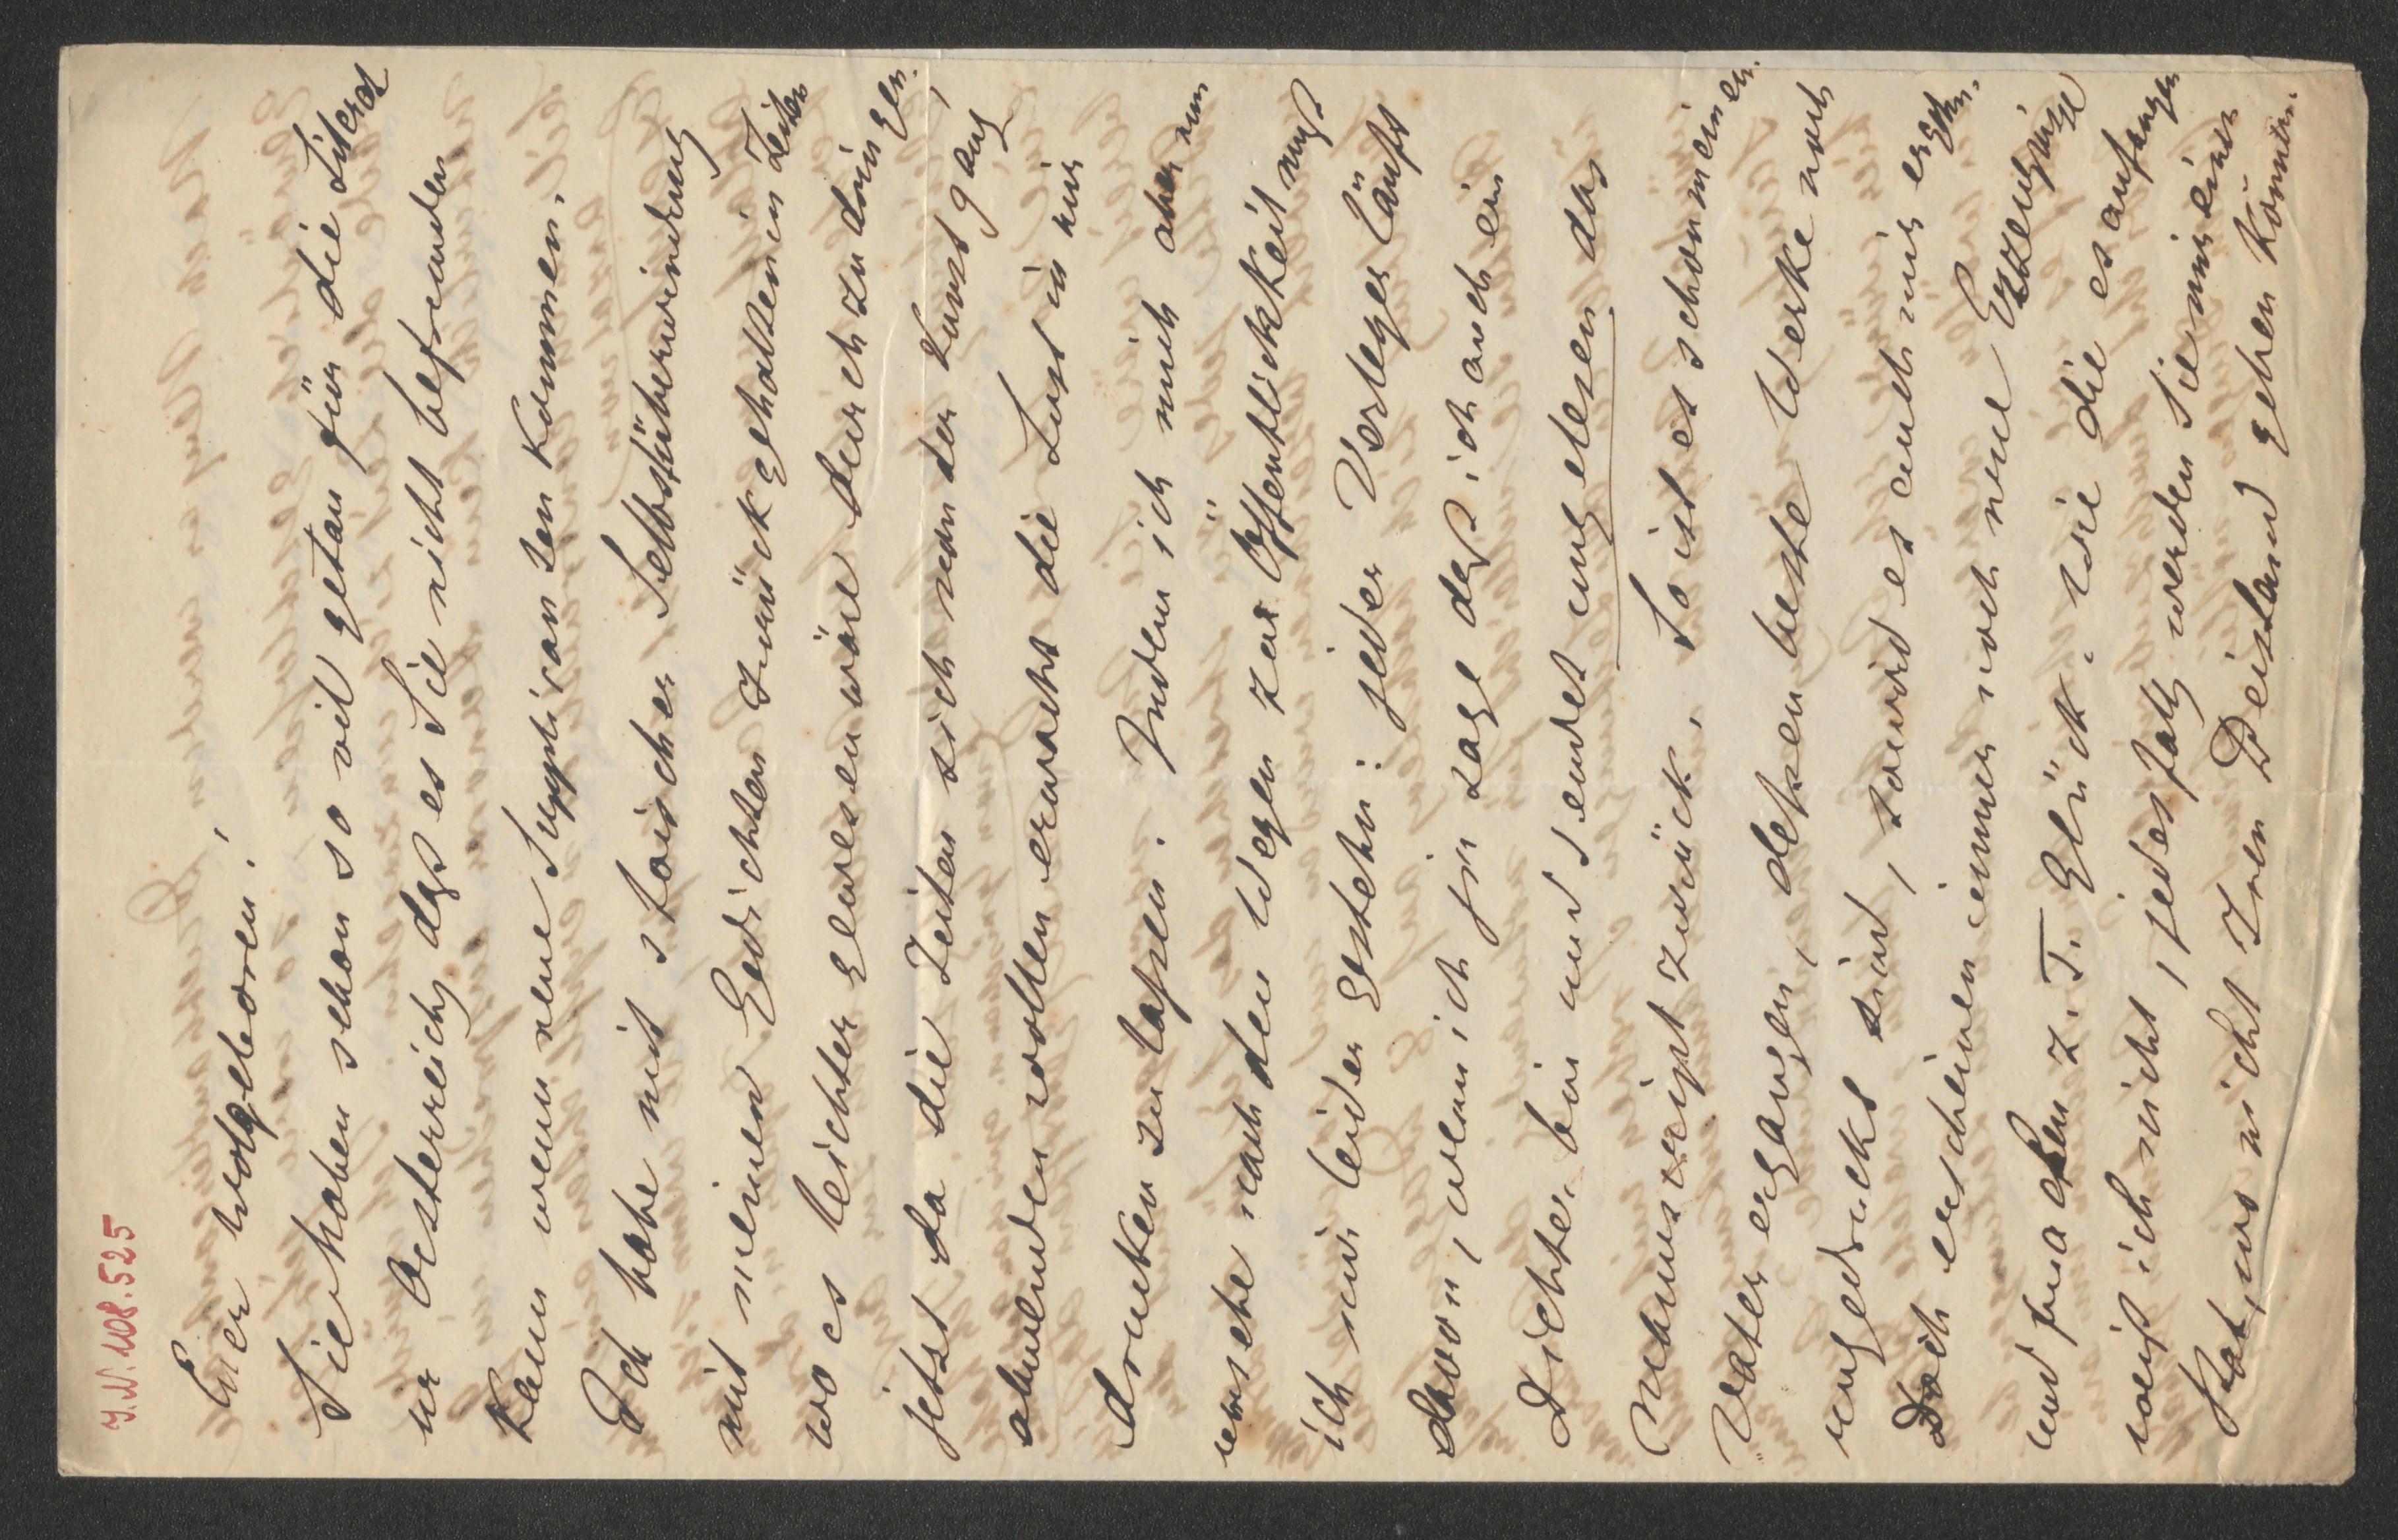 I.N. 108.525
Euer wolgeboren!
Sie haben schon so vil getan für die Literat
ur Oesterreichs dass es Sie nicht befremden
kann wenn neue Supplicanten kommen.
Ich habe mit stoischer Selbstüberwindung
mit meinen Gedichten zurückgehalten in Zeiten
wo es leichter gewesen wäre durchzudringen.
jetzt da die Zeiten sich von der Kunst gänz
abwenden wollen erwacht die Lust in mir
drucken zu lassen. Indem ich mich aber nun
umsehe nach den Wegen zur Öffentlichkeit muss
ich mir leider gestehn: jeder Verleger läuft
davon, wenn ich jm sage dass ich auch ein
Dichter bin und sendet ungelesen das
Manuscript zurück. So ist es schon meinem
Vater ergangen, dessen beste Werke noch
ungedruckt sind, so wird es auch mir ergehn.
Doch erscheinen immer noch neue Erzeugnisse
und machen z. T. Glück. Wie die es anfangen
weiss ich nicht, jedesfalls werden Sie mir einen
Rat, wo nicht Iren Beistand geben können.